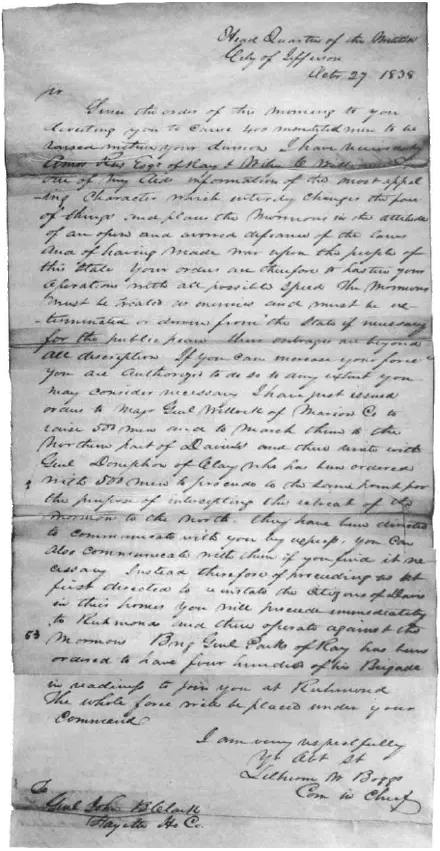 Head Quarters of the Militia
City of Jefferson
Octr 27 1838
Sir
Since the order of the morning to you
directing you to cause 400 mounted men to be
raised within your division I have received by
Amos Rees Esqr of Ray & Wiley C
one of my aids information of the most appal
-ling character which entirely changes the face
of things and places the Mormons in the attitude
of an open and avowed defiance of the laws
and of having made war upon the people of
this State Your orders are therefore to hasten your
operations with all possible speed The Mormons
must be treated as enemies and must be ex-
-terminated or driven from the State if necessary
for the public peace their outrages are beyond
all description If you can increase your force
you are authorized to do so to any extent you
may consider necessary I have just issued
orders to Majr Genl Willock of Marion Co to
raise 500 men and to march them to the
Northern part of Daviess and there unite with
Genl Doniphan of Clay who has been ordered
with 500 men to proceed to the same point for
the purpose of intercepting the retreat of the
Mormon to the North. They have been directed
to communicate with you by express, you can
also communicate with them if you find it ne
cessary Instead therefore of proceeding as at
first directed to reinstate the Citizens of Daviess
in their homes you will proceed immediately
to Richmond and there operate against the
53
Mormons Brig Genl Parks of Ray has been
ordered to have four hundred of his Brigade
in readiness to join you at Richmond
The whole force will be placed under your
Command
I am very respectfully
Yr obt St
Lilburn W Boggs
Com in Chief
To
Genl John B Clark
Fayette Ho Co.